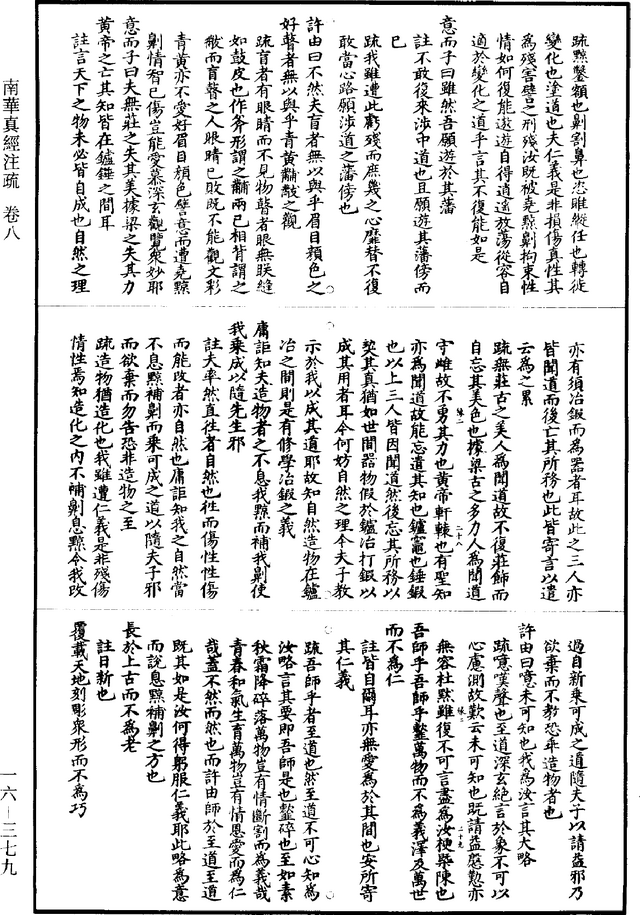 南華真經注疏　卷八
疏黥鑿額也劓割鼻也恣睢縱任也轉徙
變化也塗道也夫仁義是非損傷真性其
為殘害譬之刑殘汝既被堯黥劓拘束性
情如何復能遨遊自得逍遙放蕩從容自
適於變化之道乎言其不復能如是
意而子曰雖然吾願遊於其藩
註不敢復來涉中道也且願遊其藩傍而
已
疏我雖遭此虧殘而庶幾之心靡替不復
敢當心路願涉道之藩傍也
許由曰不然夫盲者無以與乎眉目顏色之
好瞽者無以與乎青黃黼黻之觀
疏盲者有眼睛而不見物瞽者眼無眹縫
如鼓皮也作斧形謂之黼兩已相背謂之
黻而盲瞽之人眼睛已敗既不能觀文彩
青黃亦不愛好眉目顏色譬意而遭堯黥
劓情智已傷豈能愛慕深玄觀覽衆妙耶
意而子曰夫無莊之失其美據梁之失其力
黃帝之亡其知皆在鑪錘之間耳
註言天下之物未必皆自成也自然之理
亦有須冶鍛而為器者耳故此之三人亦
皆聞道而後亡其所務也此皆寄言以遣
云為之累
疏無莊古之美人為聞道故不復莊飾而
自忘其美色也據梁古之多力人為聞道
守雌故不勇其力也黃帝軒轅也有聖知
亦為聞道故能忘遣其知也鑪竈也錘鍛
也以上三人皆因聞道然後忘其所務以
契其真猶如世間器物假於鑪冶打鍛以
成其用者耳今何妨自然之理令夫子教
示於我以成其道耶故知自然造物在鑪
冶之間則是有修學冶鍛之義
庸詎知夫造物者之不息我黥而補我劓使
我乘成以隨先生邪
註夫率然直往者自然也往而傷性性傷
而能改者亦自然也庸詎知我之自然當
不息黥補劓而乘可成之道以隨夫子邪
而欲棄而勿告恐非造物之至
疏造物猶造化也我雖遭仁義是非殘傷
情性焉知造化之內不補劓息黥令我改
過自新乘可成之道隨夫子以請益邪乃
欲棄而不教恐乖造物者也
許由曰噫未可知也我為汝言其大略
疏噫嘆聲也至道深玄絕言於象不可以
心慮測故歎云未可知也既請益慇懃亦
無容杜默雖復不可言盡為汝梗槩陳也
吾師乎吾師乎𩐋萬物而不為義澤及萬世
而不為仁
註皆自爾耳亦無愛為於其間也安所寄
其仁義
疏吾師乎者至道也然至道不可心知為
汝略言其要即吾師是也𩐋碎也至如素
秋霜降碎落萬物豈有情斷割而為義哉
青春和氣生育萬物豈有情恩愛而為仁
哉蓋不然而然也而許由師於至道至道
既其如是汝何得躬服仁義耶此略為意
而說息黥補劓之方也
長於上古而不為老
註日新也
覆載天地刻彫衆形而不為巧
一六－三七九